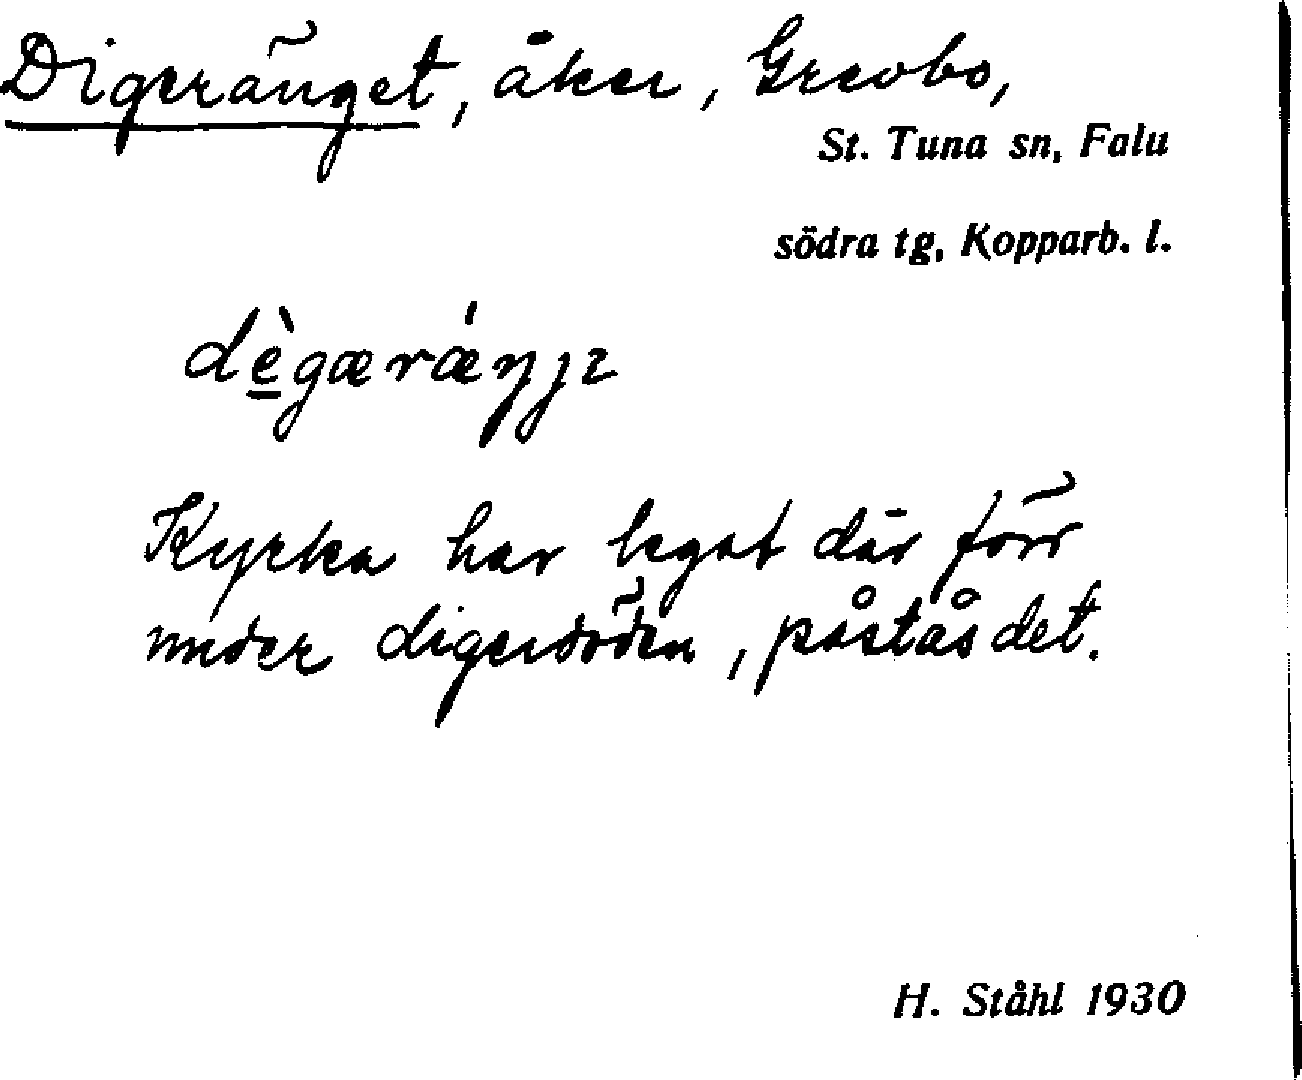 Digeränget, åker, Grevbo,
St. Tuna sn, Falu
södra tg, Kopparb. l.
dègæræ´ŋjɩ
Kyrka har legat där förr
under digerdöden, påstås det.
H. Ståhl 1930